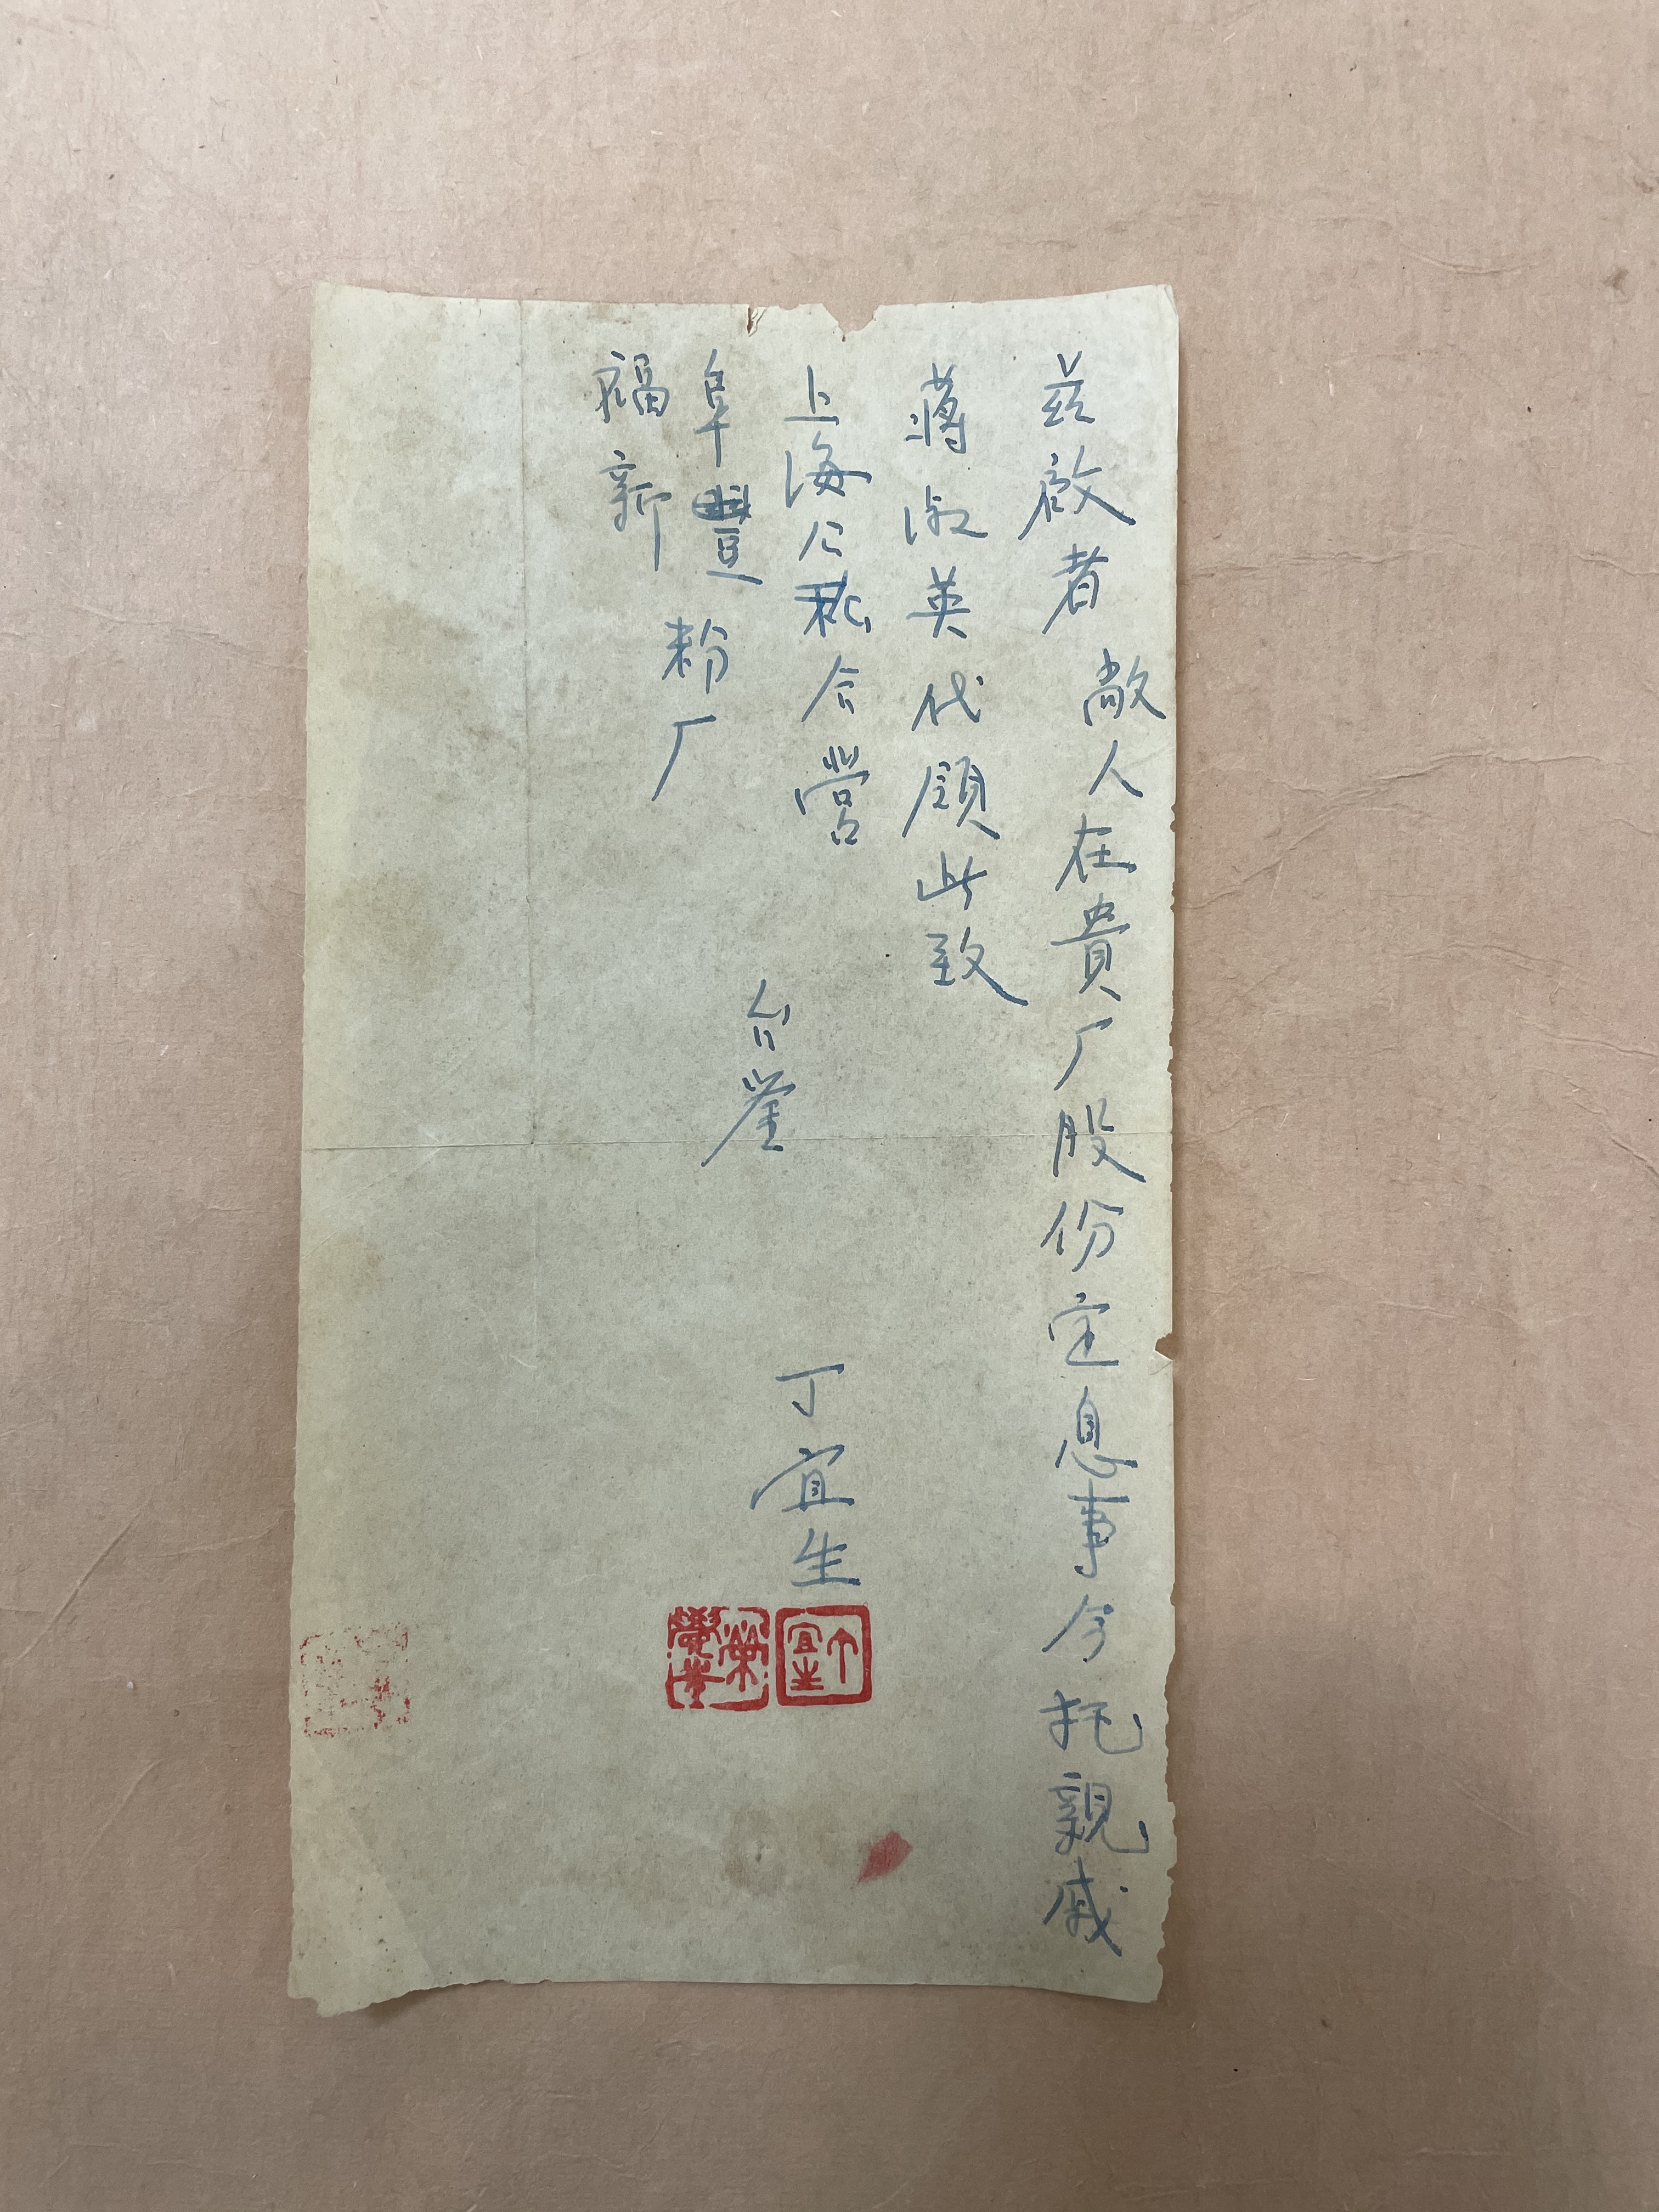 兹啟者敝人在貴厂股份定息事今托親戚
蔣淑英代領此致
上海公私合营
阜豐
福新
粉厂
台鉴
丁宜生
丁宜生